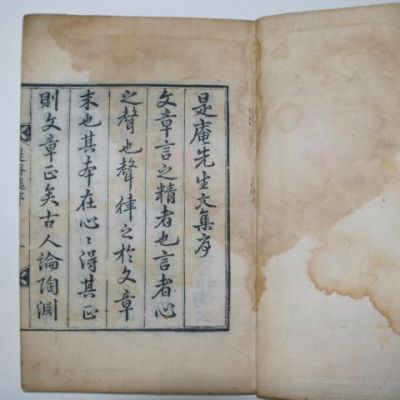 是庵先生文集序
文章言之精者也言者心
之聲也聲律之於文章
末也其本在心〻得其正
則文章正矣古人論陶淵